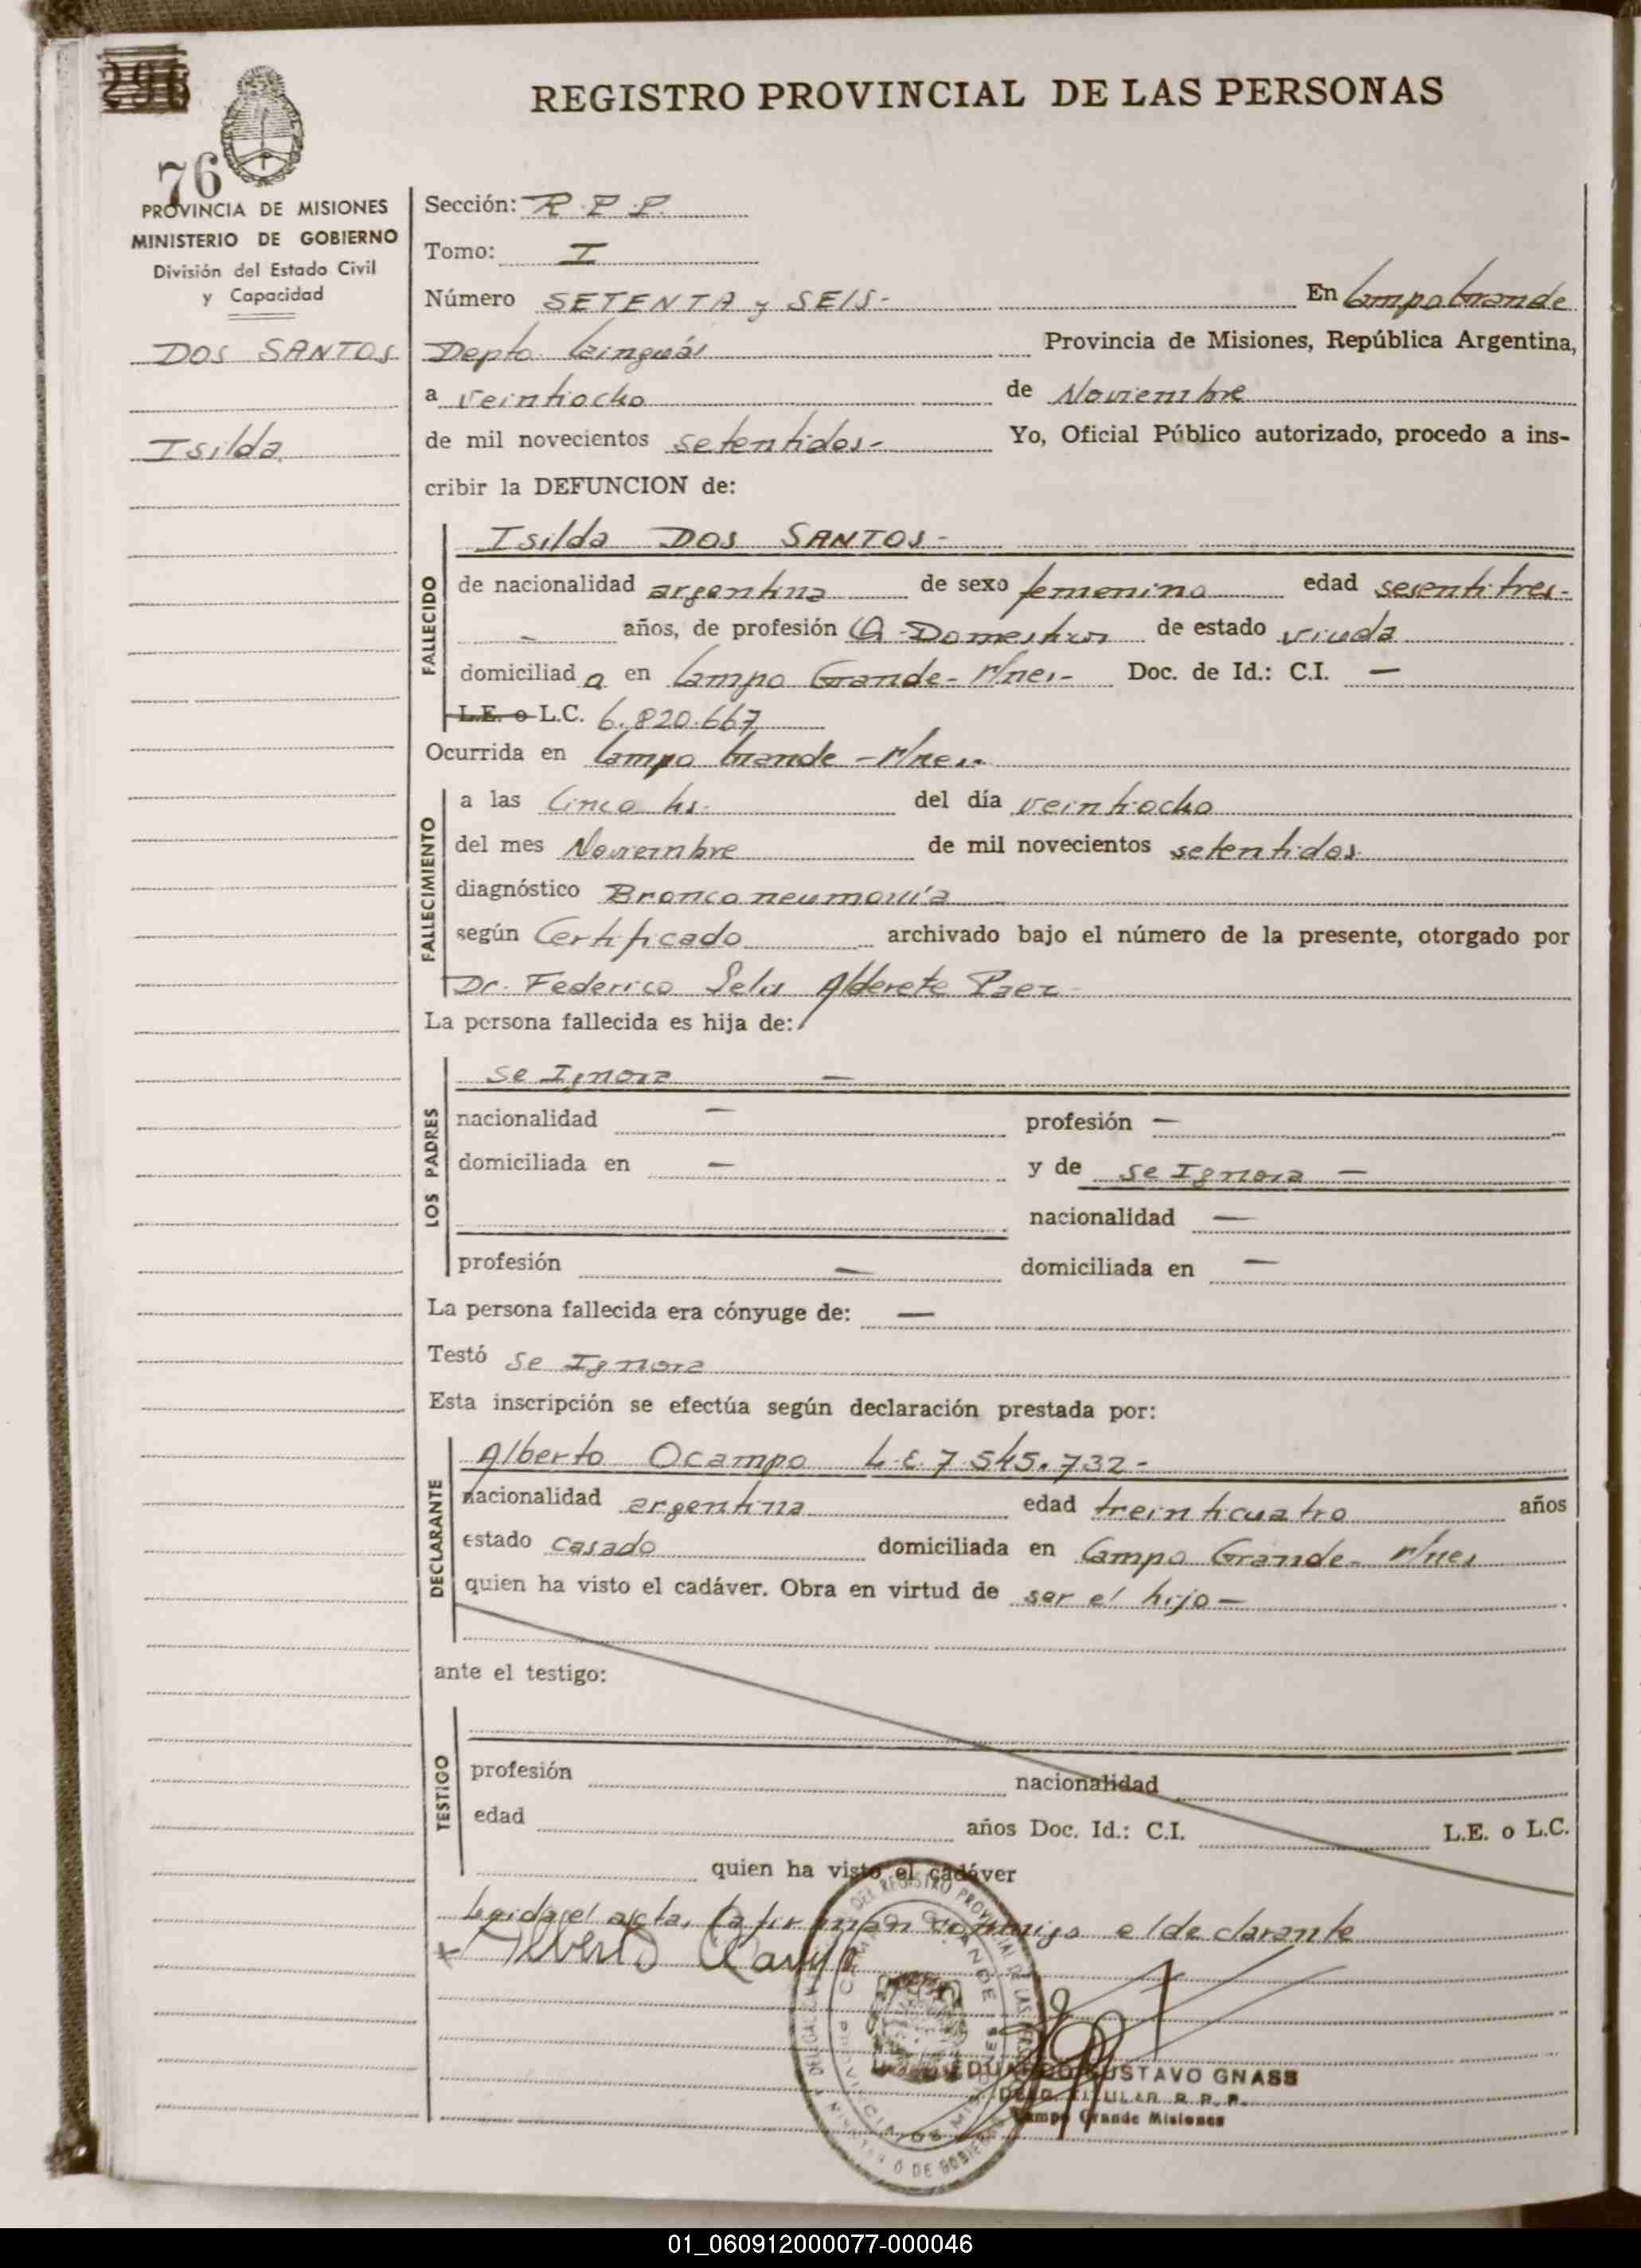 296
REGISTRO PROVINCIAL DE LAS PERSONAS
76
PROVINCIA DE MISIONES
MINISTERIO DE GOBIERNO
División del Estado Civil
y Capacidad
DOS SANTOS
Isilda
Sección: R.P.P.
Tomo: I
Número SETENTA y SEIS- En Campo Grande
Depto Cainguás Provincia de Misiones, República Argentina,
a veintiocho de Noviembre
de mil novecientos setentidos- Yo, Oficial Público autorizado, procedo a ins-
cribir la DEFUNCION de:
FALLECIDO
Isilda DOS SANTOS-
de nacionalidad argentina de sexo femenino edad sesentitres-
- años, de profesión Q. Domesticos de estado viuda
domiciliad a en Campo Grande- M/nes- Doc. de Id.: C.I. —
L.E. o L.C. 6.820.667
Ocurrida en Campo Grande - M/nes.
FALLECIMIENTO
a las Cinco hs. del día veintiocho
del mes Noviembre de mil novecientos setentidos.
diagnóstico Bronconeumonía
según Certificado archivado bajo el número de la presente, otorgado por
Dr. Federico Alderete Paez
La persona fallecida es hija de:
LOS PADRES
Se Ignora —
nacionalidad — profesión —
domiciliada en — y de Se Ignora —
nacionalidad —
profesión — domiciliada en —
La persona fallecida era cónyuge de: —
Testó Se Ignora
Esta inscripción se efectúa según declaración prestada por:
DECLARANTE
Alberto Ocampo L.E 7.545.732-
nacionalidad argentina edad treinticuatro años
estado Casado domiciliada en Campo Grande- M/nes
quien ha visto el cadáver. Obra en virtud de ser el hijo —
ante el testigo:
TESTIGO
profesión nacionalidad
edad años Doc. Id.: C.I. L.E. o L.C.
quien ha visto el cadáver
Leida el acta, la firman conmigo el declarante
Alberto
EDUARDO GUSTAVO GNASS
DELEG. TITULAR R. P. P.
Campo Grande Misiones
01_060912000077-000046